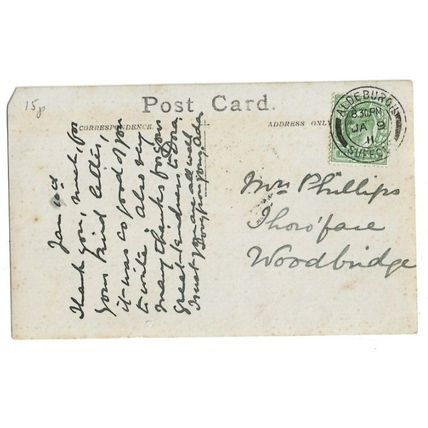 15p
Post Card.
CORRESPONDENCE.
ADDRESS ONLY
ALDEBURGH
8.30 PM
JA 9
11
SUFFO
Mrs Phillips
Thoro'face
Woodbridge
Thank you, much, for
your kind letter,
it was so good of you
to write. Also very
many thanks for your
great kindness to Dora
trust you are all well